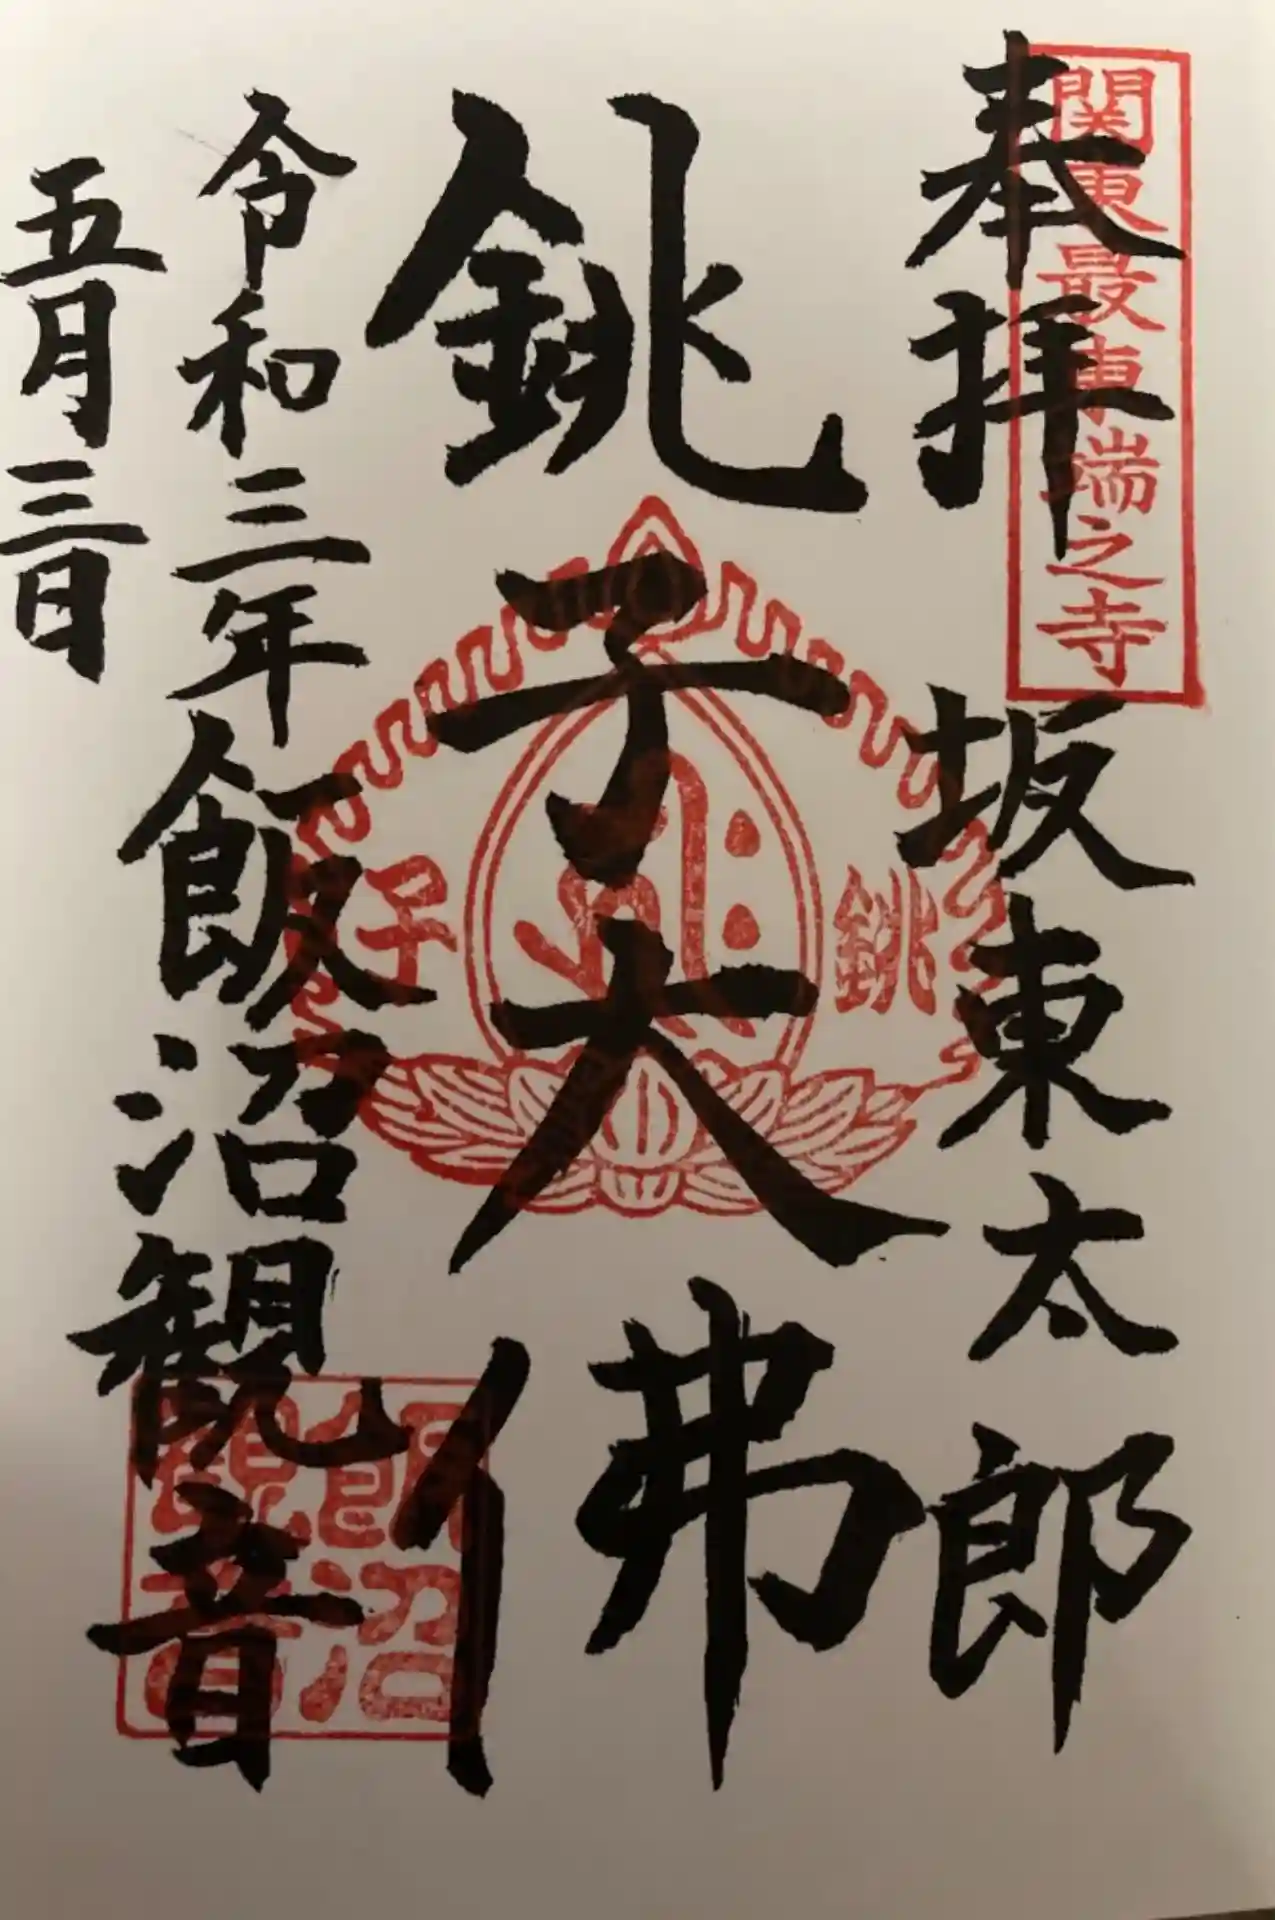 奉拝
関東最東端之寺
坂東太郎
銚子大佛
銚子
令和三年
五月三日
飯沼観音
飯沼観音